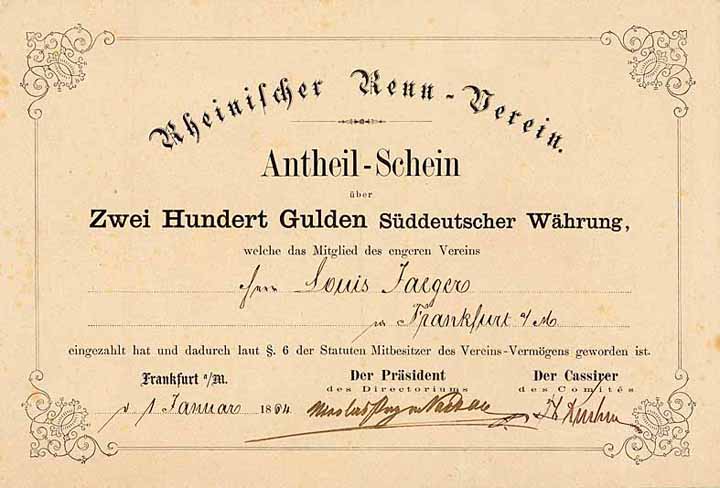 Rheinischer Renn-Verein.
Antheil-Schein
über
Zwei Hundert Gulden Süddeutscher Währung,
welche das Mitglied des engeren Vereins
Herr Louis Jaeger
in Frankfurt a/M
eingezahlt hat und dadurch laut §. 6 der Statuten Mitbesitzer des Vereins-Vermögens geworden ist.
Frankfurt a/M. Der Präsident Der Cassirer
des Directoriums des Comités
1 Januar 1864